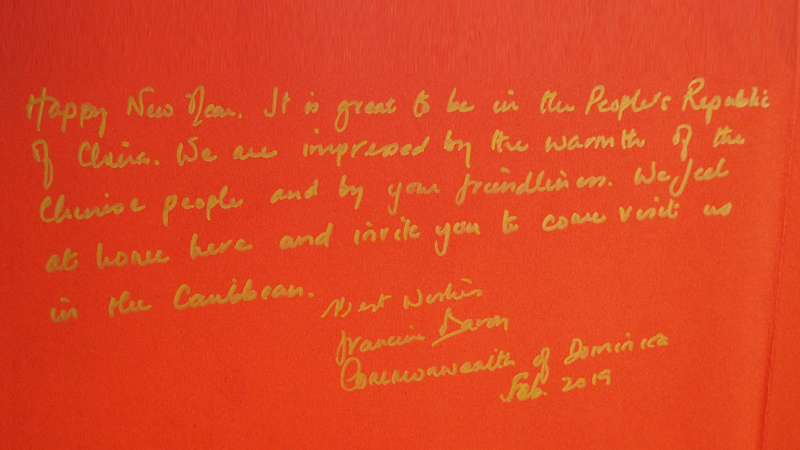 Happy New Year. It is great to be in the People's Republic
of China. We are impressed by the warmth of the
Chinese people and by your friendliness. We feel
at home here and invite you to come visit us
in the Caribbean.
Best Wishes
Francine Baron
Commonwealth of Dominica
Feb. 2019